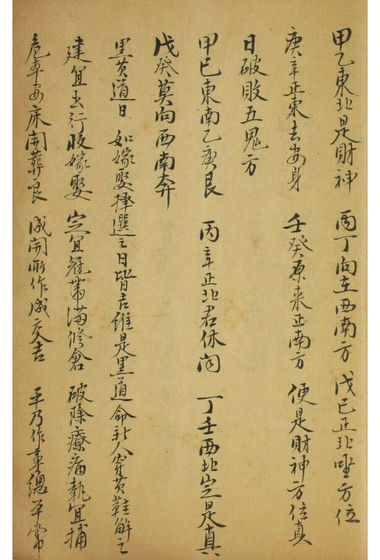 甲乙東北是財神 丙丁向在西南方 戊己正北坐方位
庚辛正東去安身 壬癸原来正南方 便是財神方位真
日破敗五鬼方
甲己東南乙庚艮 丙辛正北君休问 丁壬西北定是真
戊癸莫向西南奔
黑黄道日 如嫁娶擇選之日皆吉雖是黑道命新人穿黄鞋解之
建宜出行收嫁娶 定宜冠带满修倉 破除療病執宜捕
危本安床開葬良 成開所作成交吉 平乃作事總平常